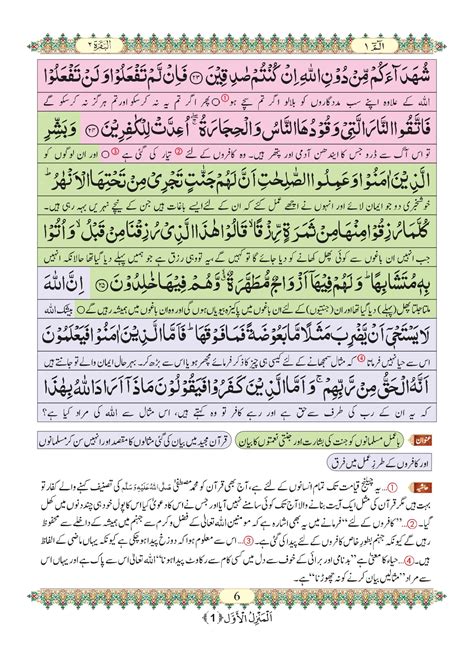 الٓمّٓ ١ البقرة ٢
شُهَدَآءَكُمْ مِّنْ دُوْنِ اللّٰهِ اِنْ كُنْتُمْ صٰدِقِيْنَ ﴿۲۳﴾ فَاِنْ لَّمْ تَفْعَلُوْا وَلَنْ تَفْعَلُوْا
اللہ کے علاوہ اپنے سب مددگاروں کو بلالو اگر تم سچے ہو ① ○ پھر اگر تم یہ نہ کرسکو اور تم ہرگز نہ کرسکو گے
فَاتَّقُوا النَّارَ الَّتِيْ وَقُوْدُهَا النَّاسُ وَالْحِجَارَةُ ۖ اُعِدَّتْ لِلْكٰفِرِيْنَ ﴿۲۴﴾ وَبَشِّرِ
تو اس آگ سے ڈرو جس کا ایندھن آدمی اور پتھر ہیں۔ وہ کافروں کے لئے ② تیار کی گئی ہے ③ ○ اور ان لوگوں کو
الَّذِيْنَ اٰمَنُوْا وَعَمِلُوا الصّٰلِحٰتِ اَنَّ لَهُمْ جَنّٰتٍ تَجْرِيْ مِنْ تَحْتِهَا الْاَنْهٰرُ ؕ
خوشخبری دو جو ایمان لائے اور انہوں نے اچھے عمل کئے کہ ان کے لئے ایسے باغات ہیں جن کے نیچے نہریں بہہ رہی ہیں۔
كُلَّمَا رُزِقُوْا مِنْهَا مِنْ ثَمَرَةٍ رِّزْقًا ۙ قَالُوْا هٰذَا الَّذِيْ رُزِقْنَا مِنْ قَبْلُ ۙ وَاُتُوْا
جب انہیں ان باغوں سے کوئی پھل کھانے کو دیا جائے گا تو کہیں گے، یہ تو وہی رزق ہے جو ہمیں پہلے دیا گیا تھا حالانکہ انہیں
بِهٖ مُتَشَابِهًا ؕ وَلَهُمْ فِيْهَآ اَزْوَاجٌ مُّطَهَّرَةٌ ۙ وَّهُمْ فِيْهَا خٰلِدُوْنَ ﴿۲۵﴾ اِنَّ اللّٰهَ
ملتا جلتا پھل (پہلے) دیا گیا تھا اور ان (جنتیوں) کے لئے ان باغوں میں پاکیزہ بیویاں ہوں گی اور وہ ان باغوں میں ہمیشہ رہیں گے ○ بیشک اللہ
لَا يَسْتَحْيٖۤ اَنْ يَّضْرِبَ مَثَلًا مَّا بَعُوْضَةً فَمَا فَوْقَهَا ؕ فَاَمَّا الَّذِيْنَ اٰمَنُوْا فَيَعْلَمُوْنَ
اس سے حیا نہیں فرماتا ④ کہ مثال سمجھانے کے لئے کیسی ہی چیز کا ذکر فرمائے مچھر ہو یا اس سے بڑھ کر۔ بہرحال ایمان والے تو جانتے ہیں
اَنَّهُ الْحَقُّ مِنْ رَّبِّهِمْ ۚ وَاَمَّا الَّذِيْنَ كَفَرُوْا فَيَقُوْلُوْنَ مَاذَاۤ اَرَادَ اللّٰهُ بِهٰذَا
کہ یہ ان کے رب کی طرف سے حق ہے اور رہے کافر تو وہ کہتے ہیں، اس مثال سے اللہ کی مراد کیا ہے؟
عنوان باعمل مسلمانوں کو جنت کی بشارت اور جنتی نعمتوں کا بیان قرآن مجید میں بیان کی گئی مثالوں کا مقصد اور انہیں سن کر مسلمانوں
اور کافروں کے طرزِ عمل میں فرق
حاشیہ ①... یہ چیلنج قیامت تک تمام انسانوں کے لئے ہے، آج بھی قرآن کو محمد مصطفیٰ صلی اللہ علیہ وسلم کی تصنیف کہنے والے کفار تو
بہت ہیں مگر قرآن کی مثل ایک آیت بنانے والا آج تک کوئی سامنے نہیں آیا اور جس نے اس کا دعویٰ کیا اس کا پول خود ہی چند دنوں میں کھل
گیا۔ ②... ”کافروں کے لئے“ فرمانے میں یہ بھی اشارہ ہے کہ مومنین اللہ تعالیٰ کے فضل و کرم سے جہنم میں ہمیشہ داخل رہنے سے محفوظ
رہیں گے کیونکہ جہنم بطورِ خاص کافروں کے لئے پیدا کی گئی ہے۔ ③... اس سے معلوم ہوا کہ دوزخ پیدا ہو چکی ہے کیونکہ یہاں ماضی کے الفاظ
ہیں۔ ④... ”حیا“ کا معنیٰ ہے ”بدنامی اور برائی کے خوف سے دل میں کسی کام سے رکاوٹ پیدا ہونا“ اللہ تعالیٰ اس سے پاک ہے اور یہاں اس
سے مراد ”مثالیں بیان کرنے کو نہ چھوڑنا“ ہے۔
6
اَلْمَنْزِلُ الْاَوَّل ﴿1﴾